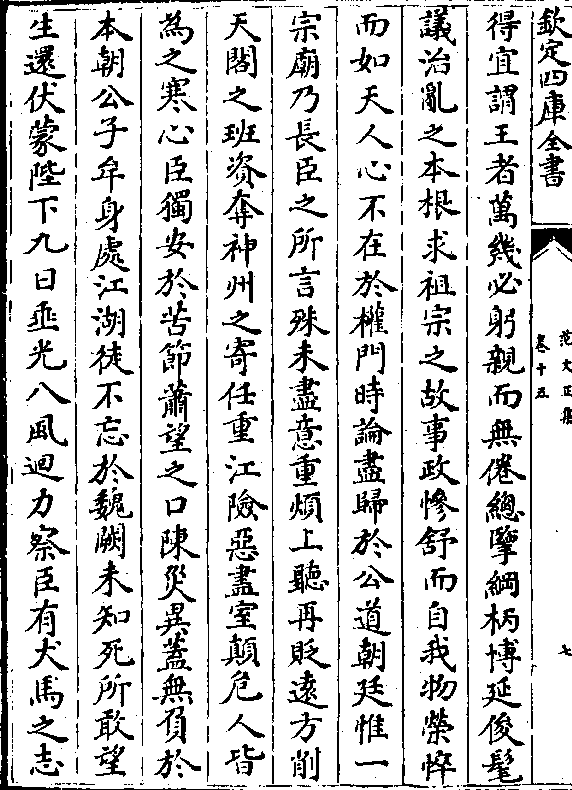 欽定四庫全書
范文正集
卷十五
七
得宜謂王者萬幾必躬親而無倦總擥綱柄博延俊髦
議治亂之本根求祖宗之故事政慘舒而自我物榮悴
而如天人心不在於權門時論盡歸於公道朝廷惟一
宗廟乃長臣之所言殊未盡意重煩上聽再貶遠方削
天閣之班資奪神州之寄任重江險惡盡室顛危人皆
為之寒心臣獨安於苦節蕭望之口陳災異蓋無負於
本朝公子牟身處江湖徒不忘於魏闕未知死所敢望
生還伏蒙陛下九日垂光八風迴力察臣有犬馬之志